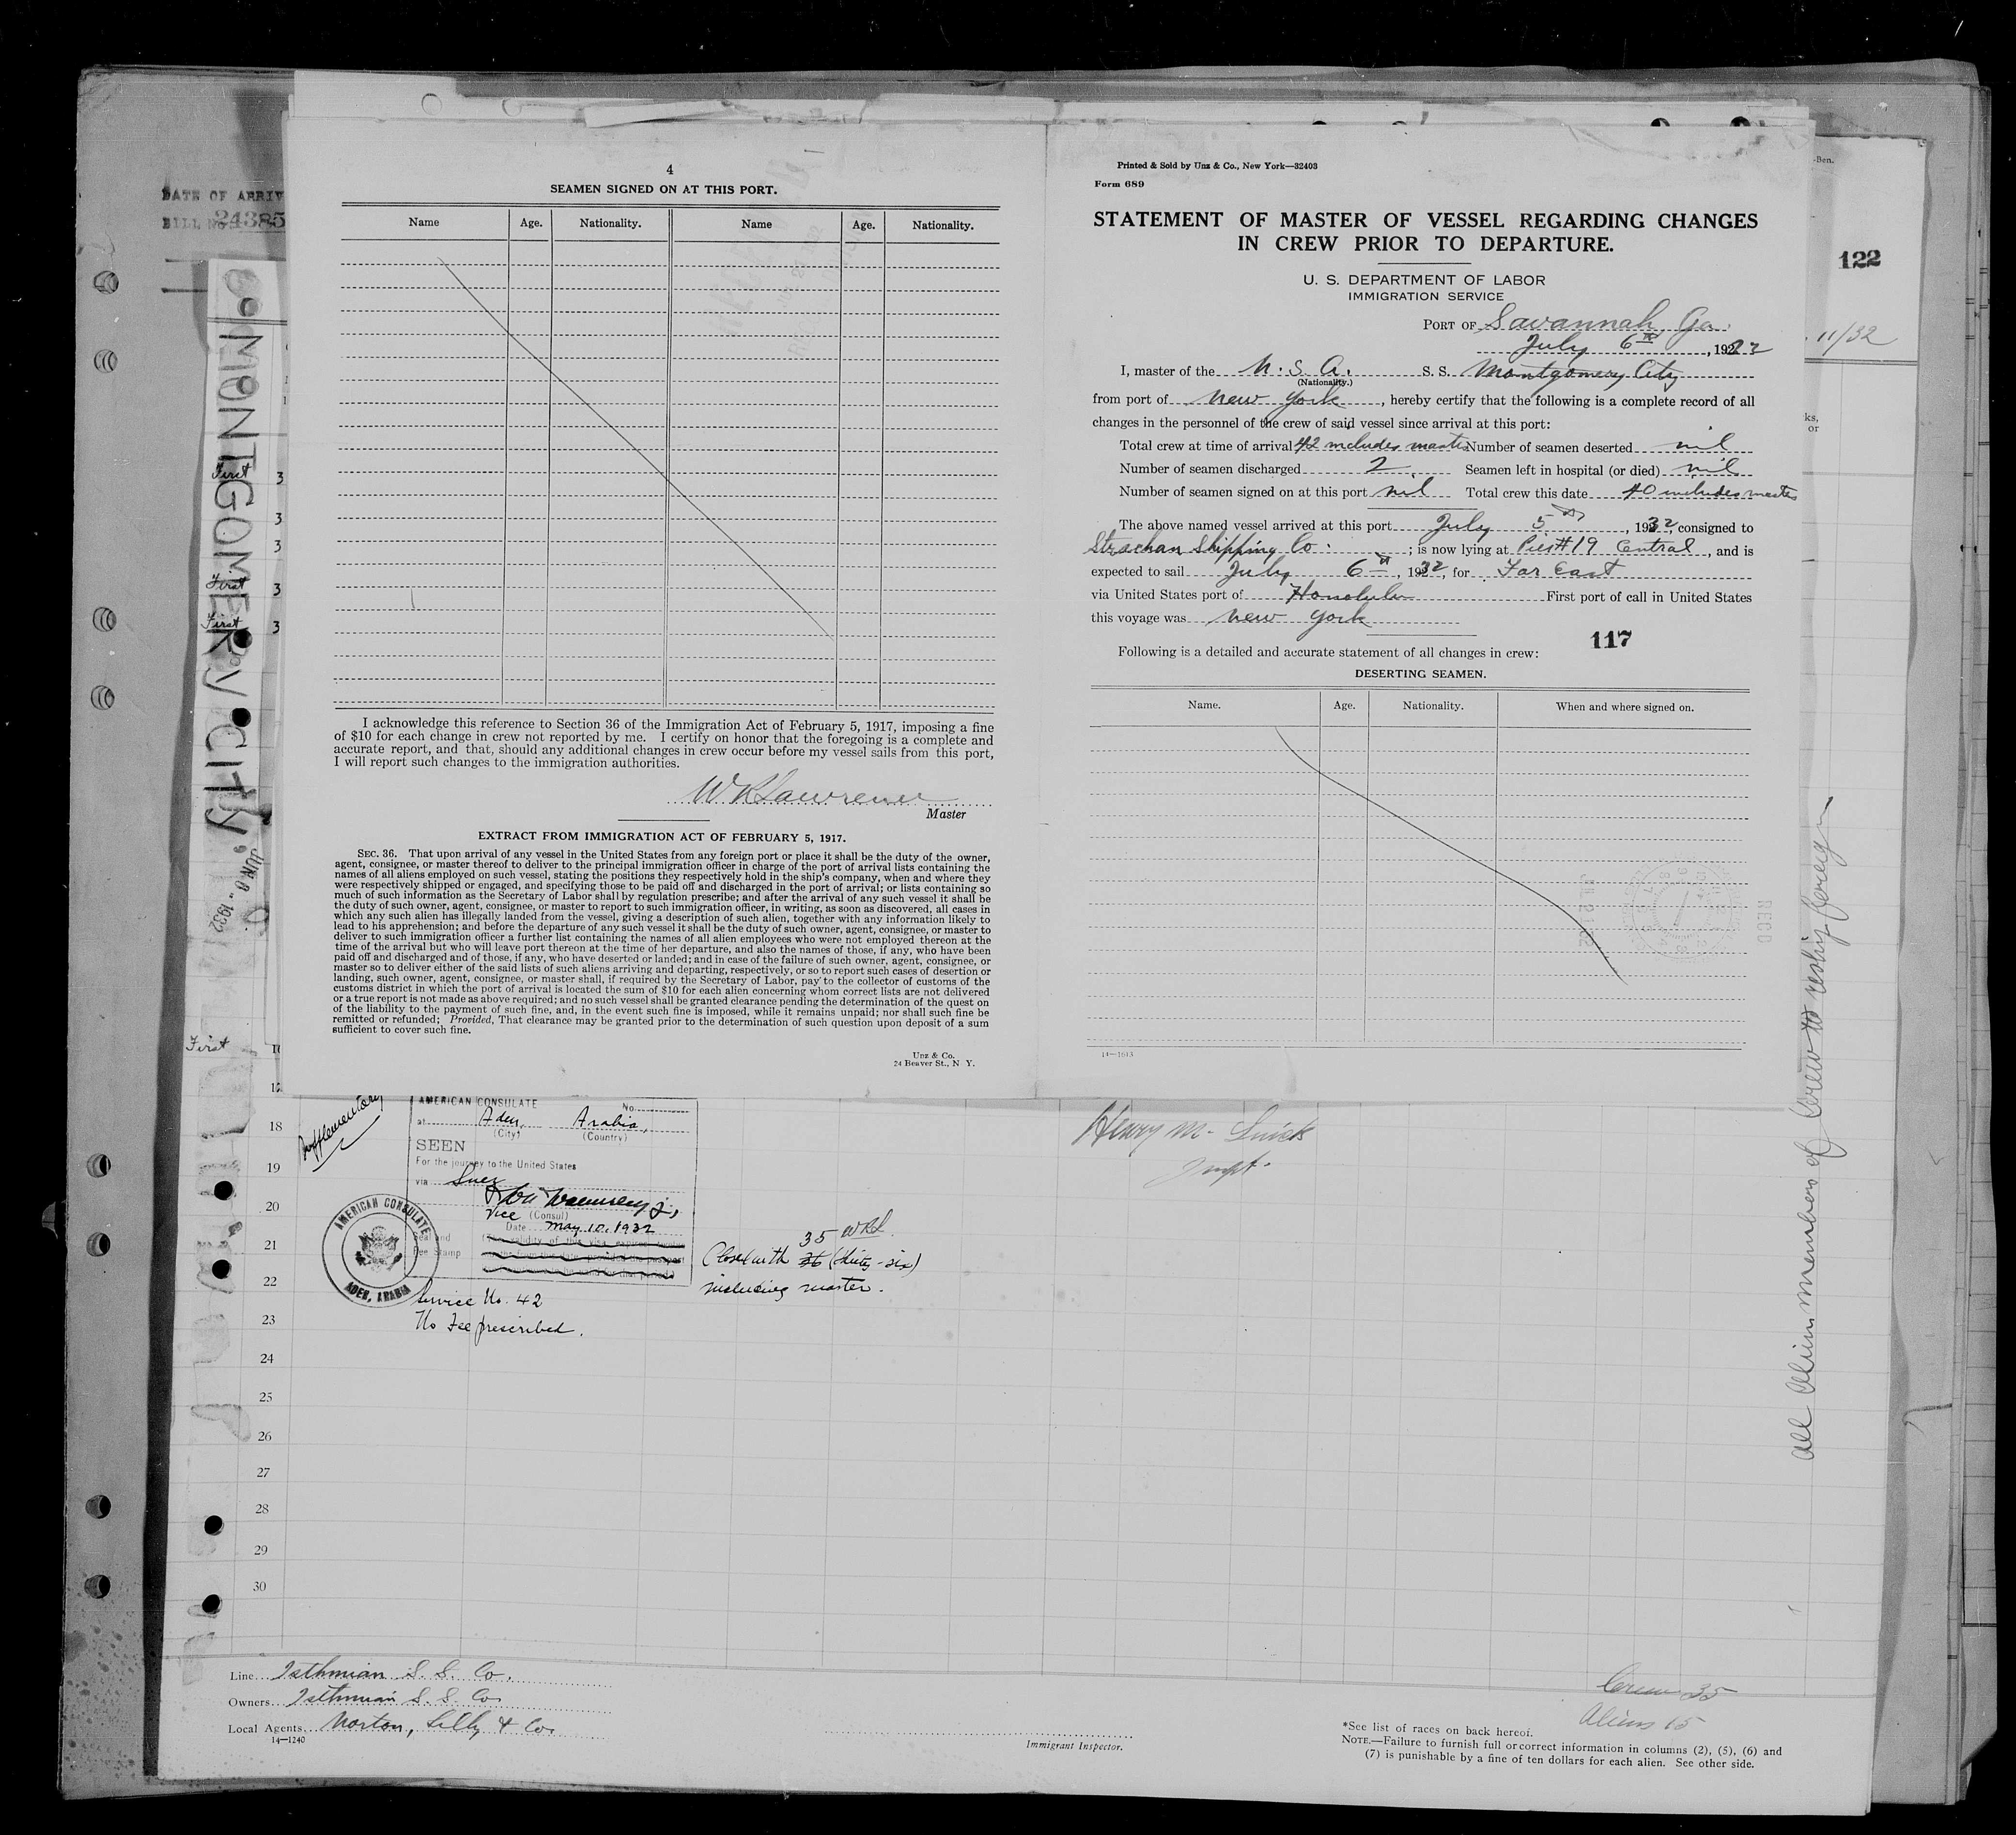 DATE OF ARRIV
BILL No. 24385
MONTGOMERY CITY
JUN 8 - 1932
First 3
3
3
First 3
First 3
First
4
SEAMEN SIGNED ON AT THIS PORT.
Name Age. Nationality. Name Age. Nationality.
I acknowledge this reference to Section 36 of the Immigration Act of February 5, 1917, imposing a fine
of $10 for each change in crew not reported by me. I certify on honor that the foregoing is a complete and
accurate report, and that, should any additional changes in crew occur before my vessel sails from this port,
I will report such changes to the immigration authorities.
W R Lawrence
Master
EXTRACT FROM IMMIGRATION ACT OF FEBRUARY 5, 1917.
SEC. 36. That upon arrival of any vessel in the United States from any foreign port or place it shall be the duty of the owner,
agent, consignee, or master thereof to deliver to the principal immigration officer in charge of the port of arrival lists containing the
names of all aliens employed on such vessel, stating the positions they respectively hold in the ship's company, when and where they
were respectively shipped or engaged, and specifying those to be paid off and discharged in the port of arrival; or lists containing so
much of such information as the Secretary of Labor shall by regulation prescribe; and after the arrival of any such vessel it shall be
the duty of such owner, agent, consignee, or master to report to such immigration officer, in writing, as soon as discovered, all cases in
which any such alien has illegally landed from the vessel, giving a description of such alien, together with any information likely to
lead to his apprehension; and before the departure of any such vessel it shall be the duty of such owner, agent, consignee, or master to
deliver to such immigration officer a further list containing the names of all alien employees who were not employed thereon at the
time of the arrival but who will leave port thereon at the time of her departure, and also the names of those, if any, who have been
paid off and discharged and of those, if any, who have deserted or landed; and in case of the failure of such owner, agent, consignee, or
master so to deliver either of the said lists of such aliens arriving and departing, respectively, or so to report such cases of desertion or
landing, such owner, agent, consignee, or master shall, if required by the Secretary of Labor, pay to the collector of customs of the
customs district in which the port of arrival is located the sum of $10 for each alien concerning whom correct lists are not delivered
or a true report is not made as above required; and no such vessel shall be granted clearance pending the determination of the quest on
of the liability to the payment of such fine, and, in the event such fine is imposed, while it remains unpaid; nor shall such fine be
remitted or refunded; Provided, That clearance may be granted prior to the determination of such question upon deposit of a sum
sufficient to cover such fine.
Unz & Co.
24 Beaver St., N. Y.
Printed & Sold by Unz & Co., New York—32403
Form 689
STATEMENT OF MASTER OF VESSEL REGARDING CHANGES
IN CREW PRIOR TO DEPARTURE.
U. S. DEPARTMENT OF LABOR
IMMIGRATION SERVICE
PORT OF Savannah, Ga.
July 6th, 1932
I, master of the U. S. A. S. S. Montgomery City
(Nationality.)
from port of New York, hereby certify that the following is a complete record of all
changes in the personnel of the crew of said vessel since arrival at this port:
Total crew at time of arrival 42 includes master Number of seamen deserted nil
Number of seamen discharged 2 Seamen left in hospital (or died) nil
Number of seamen signed on at this port nil Total crew this date 40 includes master
The above named vessel arrived at this port July 5th, 1932, consigned to
Strachan Shipping Co.; is now lying at Pier #19 Central, and is
expected to sail July 6th, 1932, for Far East
via United States port of Honolulu First port of call in United States
this voyage was New York
117
Following is a detailed and accurate statement of all changes in crew:
DESERTING SEAMEN.
Name. Age. Nationality. When and where signed on.
14—1613
RECD
-Ben.
122
11/32
ks,
or
All Alien members of Crew to reship foreign
Supplementary
AMERICAN CONSULATE No.
at Aden, Arabia,
(City) (Country)
SEEN
For the journey to the United States
via Suez
Vice (Consul)
Date May 10, 1932
Seal and
Fee Stamp
AMERICAN CONSULATE
ADEN, ARABIA
Service No. 42
No Fee prescribed.
35 WRL
Closed with 36 (thirty-six)
including master.
Henry M.
Inspt.
18
19
20
21
22
23
24
25
26
27
28
29
30
Line Isthmian S. S. Co.
Owners Isthmian S. S. Co
Local Agents Norton, Lilly & Co.
14—1240
Immigrant Inspector.
Crew 35
Aliens 15
*See list of races on back hereof.
NOTE.—Failure to furnish full or correct information in columns (2), (5), (6) and
(7) is punishable by a fine of ten dollars for each alien. See other side.